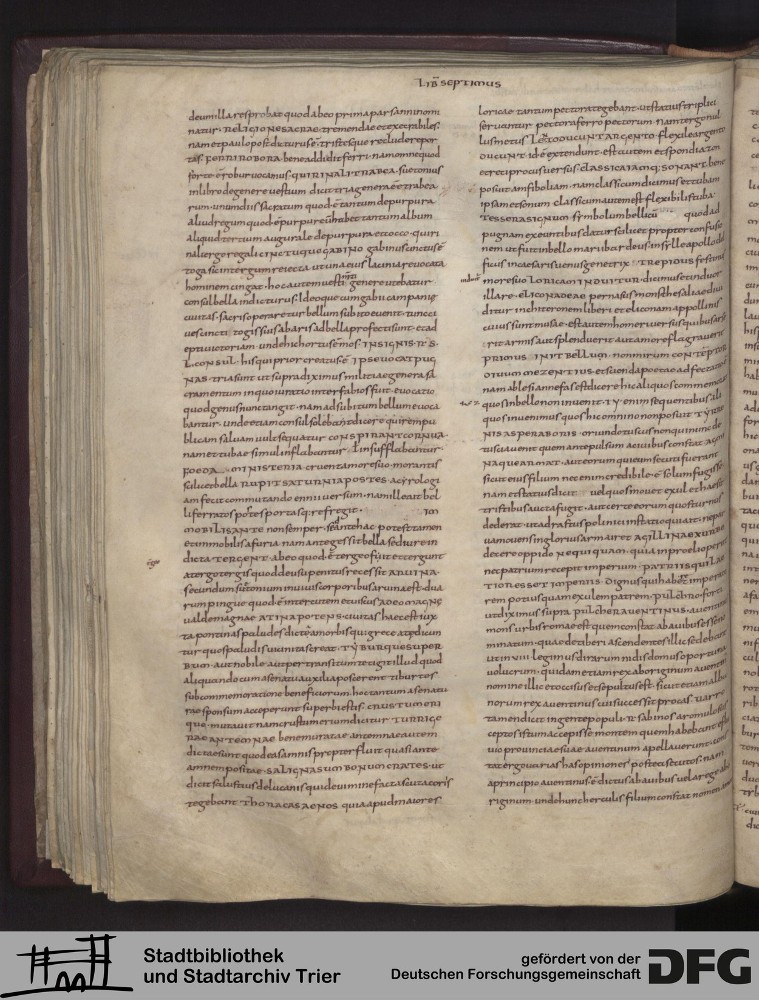 LIB SEPTIMUS
deumillaresprobat quodabeo primaparsanninomi
natur. RELIGIONESACRAE. tremendae etexecribiles.
nam etpaulopost dicturusē. tristesque recluderepor
tas. FERRI ROBORA. bene addidit ferri. nam omne quod
forte ē robur vocamus. QUIRINALI TRABEA. suetonius
in libro de genere vestium dicit tria genera eē trabea
rum. unum diis sacratum quod ē tantum de purpura
aliud regum quod ē purpureū habet tantum album
aliquid tertium augurale de purpura et cocco. quiri
nali ergo regali CINCTUQUE GABINO gabinus cinctus ē
toga sic in tergum reiecta ut una eius lacinia revocata
hominem cingat. hoc autem vesti genere utebatur
consul bella indicturus. Ideo quia cum gabii campaniȩ
civitas. sacris operaretur bellum subito evenit. tunc ci
ves cincti togis suis ab aris ad bella profecti sunt. et ad
epti victoriam. unde hic ortus ē mos. INSIGNIS
CONSUL. his qui prior creatus ē IPSE VOCAT PUG
NAS. tria sunt ut supra diximus militiae genera sa
cramentum in quo iuratio interfabios fuit. evocatio
bantur. unde etiam consul solebat dicere qui rem pu
blicam salvam vult sequatur CONSPIRANT CORNUA.
nam et tubae simul inflabantur. Ł insufflabantur
FOEDA MINISTERIA cruenta more suo. morantis
scilicet bella RUPIT SATURNIA POSTES. acyrologi
am fecit commutando ennii versum. nam ille ait bel
li ferratos postes portasq. refregit. IM
MOBILIS ANTE non semper. sed ante hac potest tamen
et inmobilis a furia. nam ante gessit bella sed iure in
dicta TERGENT. ab eo quod ē tergeo fuit et tergunt
a tergo tergis quod de usu penitus recessit ARUINA.
secundum suetonium inviscus corporibus aruina est. dua
rum pingue quod ē inter cutem et viscus. ADEO MAGNȨ
valde magnae ATINA POTENS. civitas haec est iux
ta pontinas paludes dicta a morbis qui grece dicun
tur quos paludis vicinitas creat. TYBUR QUE SUPER
BUM. aut nobile. aut per transitum tetigit illud quod
aliquando cum a senatu auxilia poscerent tiburtes
sub commemoratione beneficiorum hoc tantum a senatu
responsum acceperunt superbi estis. CRUSTUMERI
que. mutavit nam crustumerium dicitur TURRIGE
RAE ANTEMNAE bene muratae. antemnae autem
dictae sunt quod eas amnis propter fluit quasi ante
amnem positae. SALIGNAS UMBONUM CRATES. ut
dicit salustius de lucanis qui de vimine facta scuta coriis
tegebant THORACAS AENOS quia apud maiores
loricae tantum pectora tegebant. ut statius triplici
servantur pectora ferro pectorum nam tergo nul
lus metus LENTO DUCUNT ARGENTO. flexile argento
DUCUNT. id ē extendunt. est autem et spondiazon
et reciprocus versus CLASSICA IAMQ; SONANT. bene
posuit amfiboliam. nam classicum dicimus et tubam
ipsam et sonum classicum autem est flexibilis tuba
TESSERA SIGNUM symbolum bellicū quod ad
pugnam exeuntibus datur scilicet propter confusio
nem ut fuit in bello marii lar deus in syllae apollo del
ficus in caesaris venus genetrix. TREPIDUS festinus
more suo LORICAM INDUITUR. dicimus et induor
illare. ELICONA DEAE. pernasus mons thesaliae divi
ditur in cithaeronem liberi et eliconam appollinis
cuius sunt musae. est autem homeri versus quibus arsit
erit armis aut splenduerit aut amore flagraverit
PRIMUS INIT BELLUM. non mirum contēptor
DIVUM MEZENTIUS. et secundo poetae ad fectatio
nam ab lesianne fas est dicere hic aliquos commemorat
quos in bello non invenit. ET Y. enim sequentibus illi
quos invenimus quos hic omnino non posuit TYRRE
NIS ASPER AB ORIS. oriundo tuscus non quin inde
tuscia venit quem antea pulsum a civibus constat agmi
NA QUE ARMAT. aut eorum qui eum secuti fuerant
sicut eius filium. nec enim credibile ē solum fugisse
nam et statius dicit vel quos movet exul et haeret
tristibus aucta fugit. aut certe eorum quos turnus
dederat. ut adrastus polinici in statio qui ait. nepar
uam ouens inglorius armaret AGYLLINA EX URBE
de cere oppido NEQUIQUAM. quia in proelio perit
nec patrium recepit imperium. PATRIIS QUI LAE
TIOR ESSET IMPERIIS. Dignus qui haberet imperan
rem potius quam exulem patrem. PULCHRO. forti
ut diximus supra PULCHER AVENTINUS. aventinus
mons urbis romae est quem constat ab avibus esse no
minatum. quae de tiberi ascendentes illic sedebant
ut in VIII. legimus dirarum nidis domus oportuna
volucrum. quidam etiam rex aboriginum aventinus
nomine illic et occisus et sepultus est. sicut etiam alba
norum rex aventinus cui successit procas. varro
tamen dicit in gente populi r. sabinos a romulo sus
ceptos istum accepisse montem quem habebant flu
vio provinciae suae aventinum appellaverunt. con
tat ergo varias has opiniones postea secutos. nam
a principio aventinus ē dictus ab avibus vel a rege abo
riginum unde hunc herculis filium constat nomen
Stadtbibliothek
und Stadtarchiv Trier
gefördert von der
Deutschen Forschungsgemeinschaft
DFG